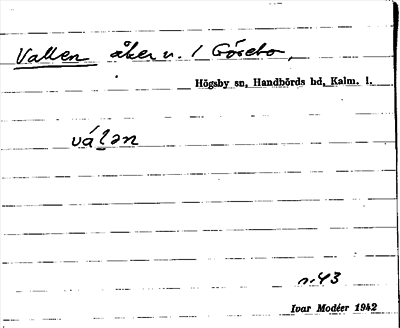 Vallen åker n. 1 Gösebo,
Högsby sn, Handbörds hd, Kalm. l.
válən
nr 43
Ivar Modéer 1942